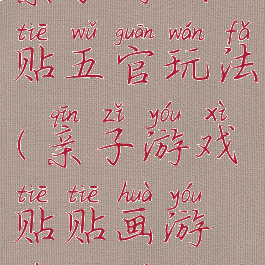 tiē wǔ guān wán fǎ
贴五官玩法
qīn zǐ yóu xì
(亲子游戏
tiē tiē huà yóu
贴贴画游